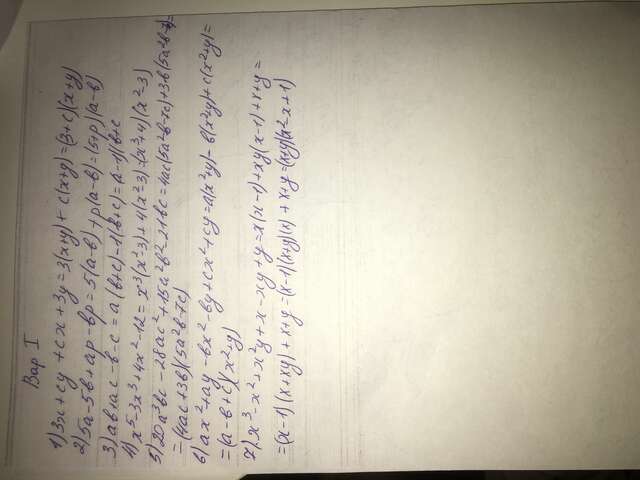 Вар I
1) 3x + cy + cx + 3y = 3(x+y) + c(x+y) = (3+c)(x+y)
2) 5a - 5b + ap - bp = 5(a-b) + p(a-b) = (5+p)(a-b)
3) ab + ac - b - c = a(b+c) - 1(b+c) = (a-1)(b+c
4) x⁵ - 3x³ + 4x² - 12 = x³(x²-3) + 4(x²-3) = (x³+4)(x²-3)
5) 20a³bc - 28ac² + 15a²b² - 21bc = 4ac(5a²b-7c) + 3b(5a²b-7c) =
= (4ac+3b)(5a²b-7c)
6) ax² + ay - bx² - by + cx² + cy = a(x²+y) - b(x²+y) + c(x²+y) =
= (a-b+c)(x²+y)
7) x³ - x² + x²y + x - xy + y = x(x-1) + xy(x-1) + x + y =
= (x-1)(x+xy) + x+y = (x-1)(x+y)(x) + x+y = (x+y)(x²-x+1)